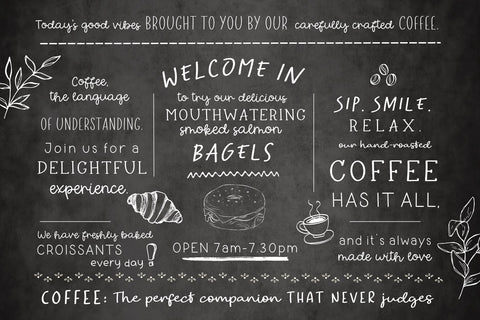 Today's good vibes BROUGHT TO YOU BY OUR carefully crafted COFFEE.
Coffee,
the language
OF UNDERSTANDING.
Join us for a
DELIGHTFUL
experience.
We have freshly baked
CROISSANTS
every day!
WELCOME IN
to try our delicious
MOUTHWATERING
smoked salmon
BAGELS
OPEN 7am-7.30pm
SIP. SMILE.
RELAX.
our hand-roasted
COFFEE
HAS IT ALL,
and it's always
made with love
COFFEE: The perfect companion THAT NEVER judges